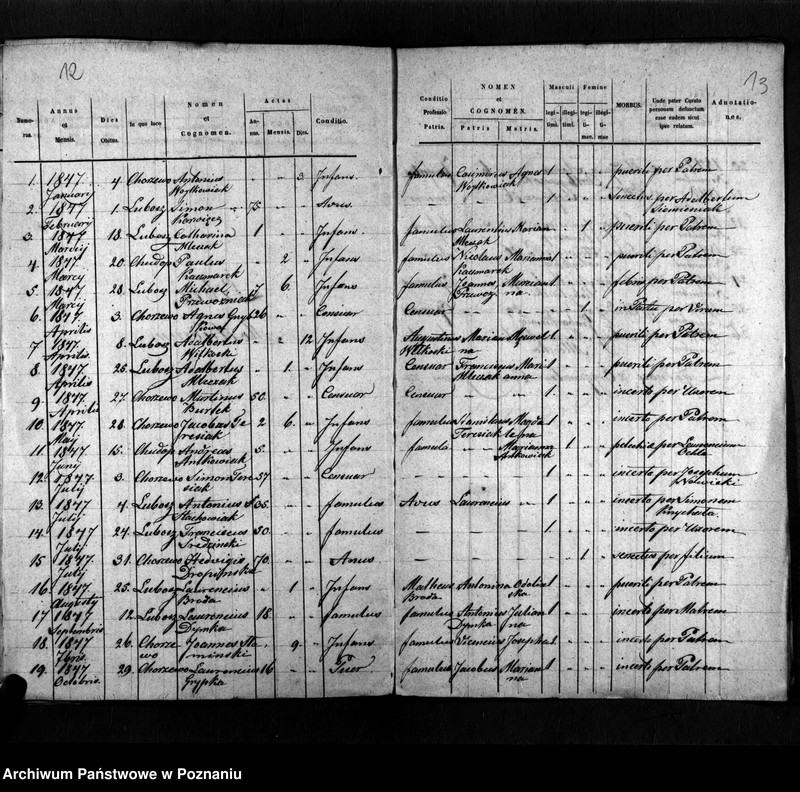 12
13
Numerus. Annus et Mensis. Dies Obitus. In quo loco Nomen et Cognomen. Aetas Annus. Mensis. Dies. Conditio. Conditio Professio Patris. NOMEN et COGNOMEN. Patris Matris. Masculi legitimi. illegitimi. Femine legitimae. illegitimae MORBUS. Unde pater Curato personam defunctam esse eadem sicut ipse relatum. Aduotationes.
1. 1847 Januarij 4. Chorzewo Antonius Woytkowiak " " 3. Infans. famulus Casimirus Woytkowiak Agnes 1 " " " puerili per Patrem
2. 1847 Februarij 1. Lubosz Simon 75. " " Avus. — — — 1 " " " senectus per Adalbertum Siemieniak
3. 1847 Martij 18. Lubosz Catharina Mleczak 1 " " Infans. famulus Laurentius Mleczak Marian " " 1 " puerili per Patrem
4. 1847 Marcy 20. Chudop Paulus Kaczmarek " 2 " Infans famulus Nicolaus Kaczmarek Marianna 1 " " " puerili per Patrem
5. 1847 Marcij 28. Lubosz Michael Przewozniak 6. " Infans famulus Joannes Przewoz Marianna 1 " " " febris per Patrem
6. 1847 Aprilis 3. Chorzewo Agnes 26 " " Censuar Censuar — — " " 1 " in Partu per Virum
7 1847 Aprilis 8. Lubosz Adalbertus Witkoski " " 12 Infans Augustinus Witkoski Marianna 1 " " " puerili per Patrem
8. 1847 Aprilis 25. Lubosz Adalbertus Mleczak " 1. " Infans Censuar Franciscus Mleczak Marianna 1 " " " puerili per Patrem
9. 1847 Aprilis 27. Chorzewo Martinus Burtek 50. " " Censuar Censuar — — 1 " " " incerto per Uxorem
10. 1847 Maij 28. Chorzewo Jacobus Teresiak 2 6. " Infans famulus Stanislaus Teresiak Magdalena 1 " " " incerto per Patrem
11. 1847 Junij 15. Chudop Andreas Antkowiak 5. " " Infans famula — Marianna Antkowiak " 1 " " per Laurencium
12. 1847 Julij 3. Chorzewo Simon Teresiak 57 " " Censuar — — — 1 " " " incerto per Josephum
13. 1847 Julij 4. Lubosz Antonius Stachowiak 35. " " famulus Avus Laurencius " 1 " " " incerto per Simonem
14. 1847 Julij 24. Lubosz Franciscus Sredzinski 50. " " famulus — — — 1 " " " incerto per Uxorem
15 1847. Julij 31. Chorzewo Hedvigis 70. " " Anus — — — " " 1 " senectus per filium
16. 1847. Augusty 25. Lubosz Laurencius Broda " 1 " Infans Matheus Broda Antonina 1 " " " puerili per Patrem
17. 1847 Septembris 12. Lubosz Laurencius Dymka 18. " " famulus famulus Antonius Dymka Julianna 1 " " " incerto per Matrem
18. 1847 26. Chorzewo Joannes " 9. " Infans famulus Vicencius Josepha 1 " " " incerto per Patrem
19. 1847 Octobris. 29. Chorzewo Laurencius Grypka 16 " " Puer famulus Jacobus Marianna 1 " " " incerto per Patrem
Archiwum Państwowe w Poznaniu